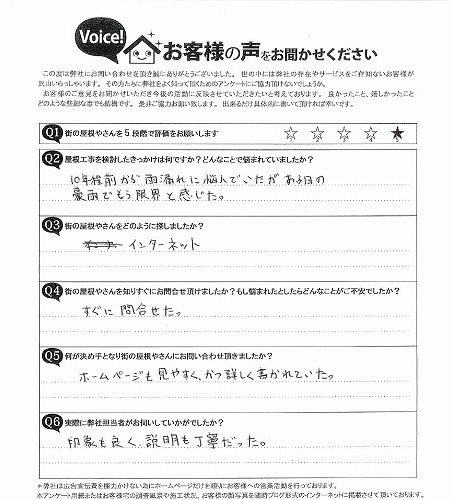 Voice!
お客様の声をお聞かせください
この度は弊社にお問い合わせを頂き誠にありがとうございました。世の中には弊社の存在やサービスをご存知ないお客様が
沢山いらっしゃいます。その方たちに弊社をよく知って頂くためのアンケートにご協力頂けないでしょうか。
お客様のご意見をお聞かせいただき今後の活動に反映させていただきたいと考えております。良かったこと、嬉しかったこと
どのような些細な事でも結構です。是非ご協力お願い致します。出来るだけ具体的に書いて頂ければ幸いです。
Q1 街の屋根やさんを5段階で評価をお願いします ☆ ☆ ☆ ☆ ★
Q2 屋根工事を検討したきっかけは何ですか?どんなことで悩まれていましたか?
10年程前から雨漏れに悩んでいたがある日の
豪雨でもう限界と感じた。
Q3 街の屋根やさんをどのように探しましたか?
インターネット
Q4 街の屋根やさんを知りすぐにお問合せ頂けましたか?もし悩まれたとしたらどんなことがご不安でしたか?
すぐに問合せた。
Q5 何が決め手となり街の屋根やさんにお問い合わせ頂きましたか?
ホームページも見やすく、かつ詳しく書かれていた。
Q6 実際に弊社担当者がお伺いしていかがでしたか?
印象も良く、説明も丁寧だった。
*弊社は広告宣伝費を極力かけない為にホームページだけを頼りにお客様への営業活動を行っております。
*アンケート用紙またはお客様宅の調査風景や施工状況、お客様の顔写真を随時ブログ形式のインターネットに掲載させて頂いております。